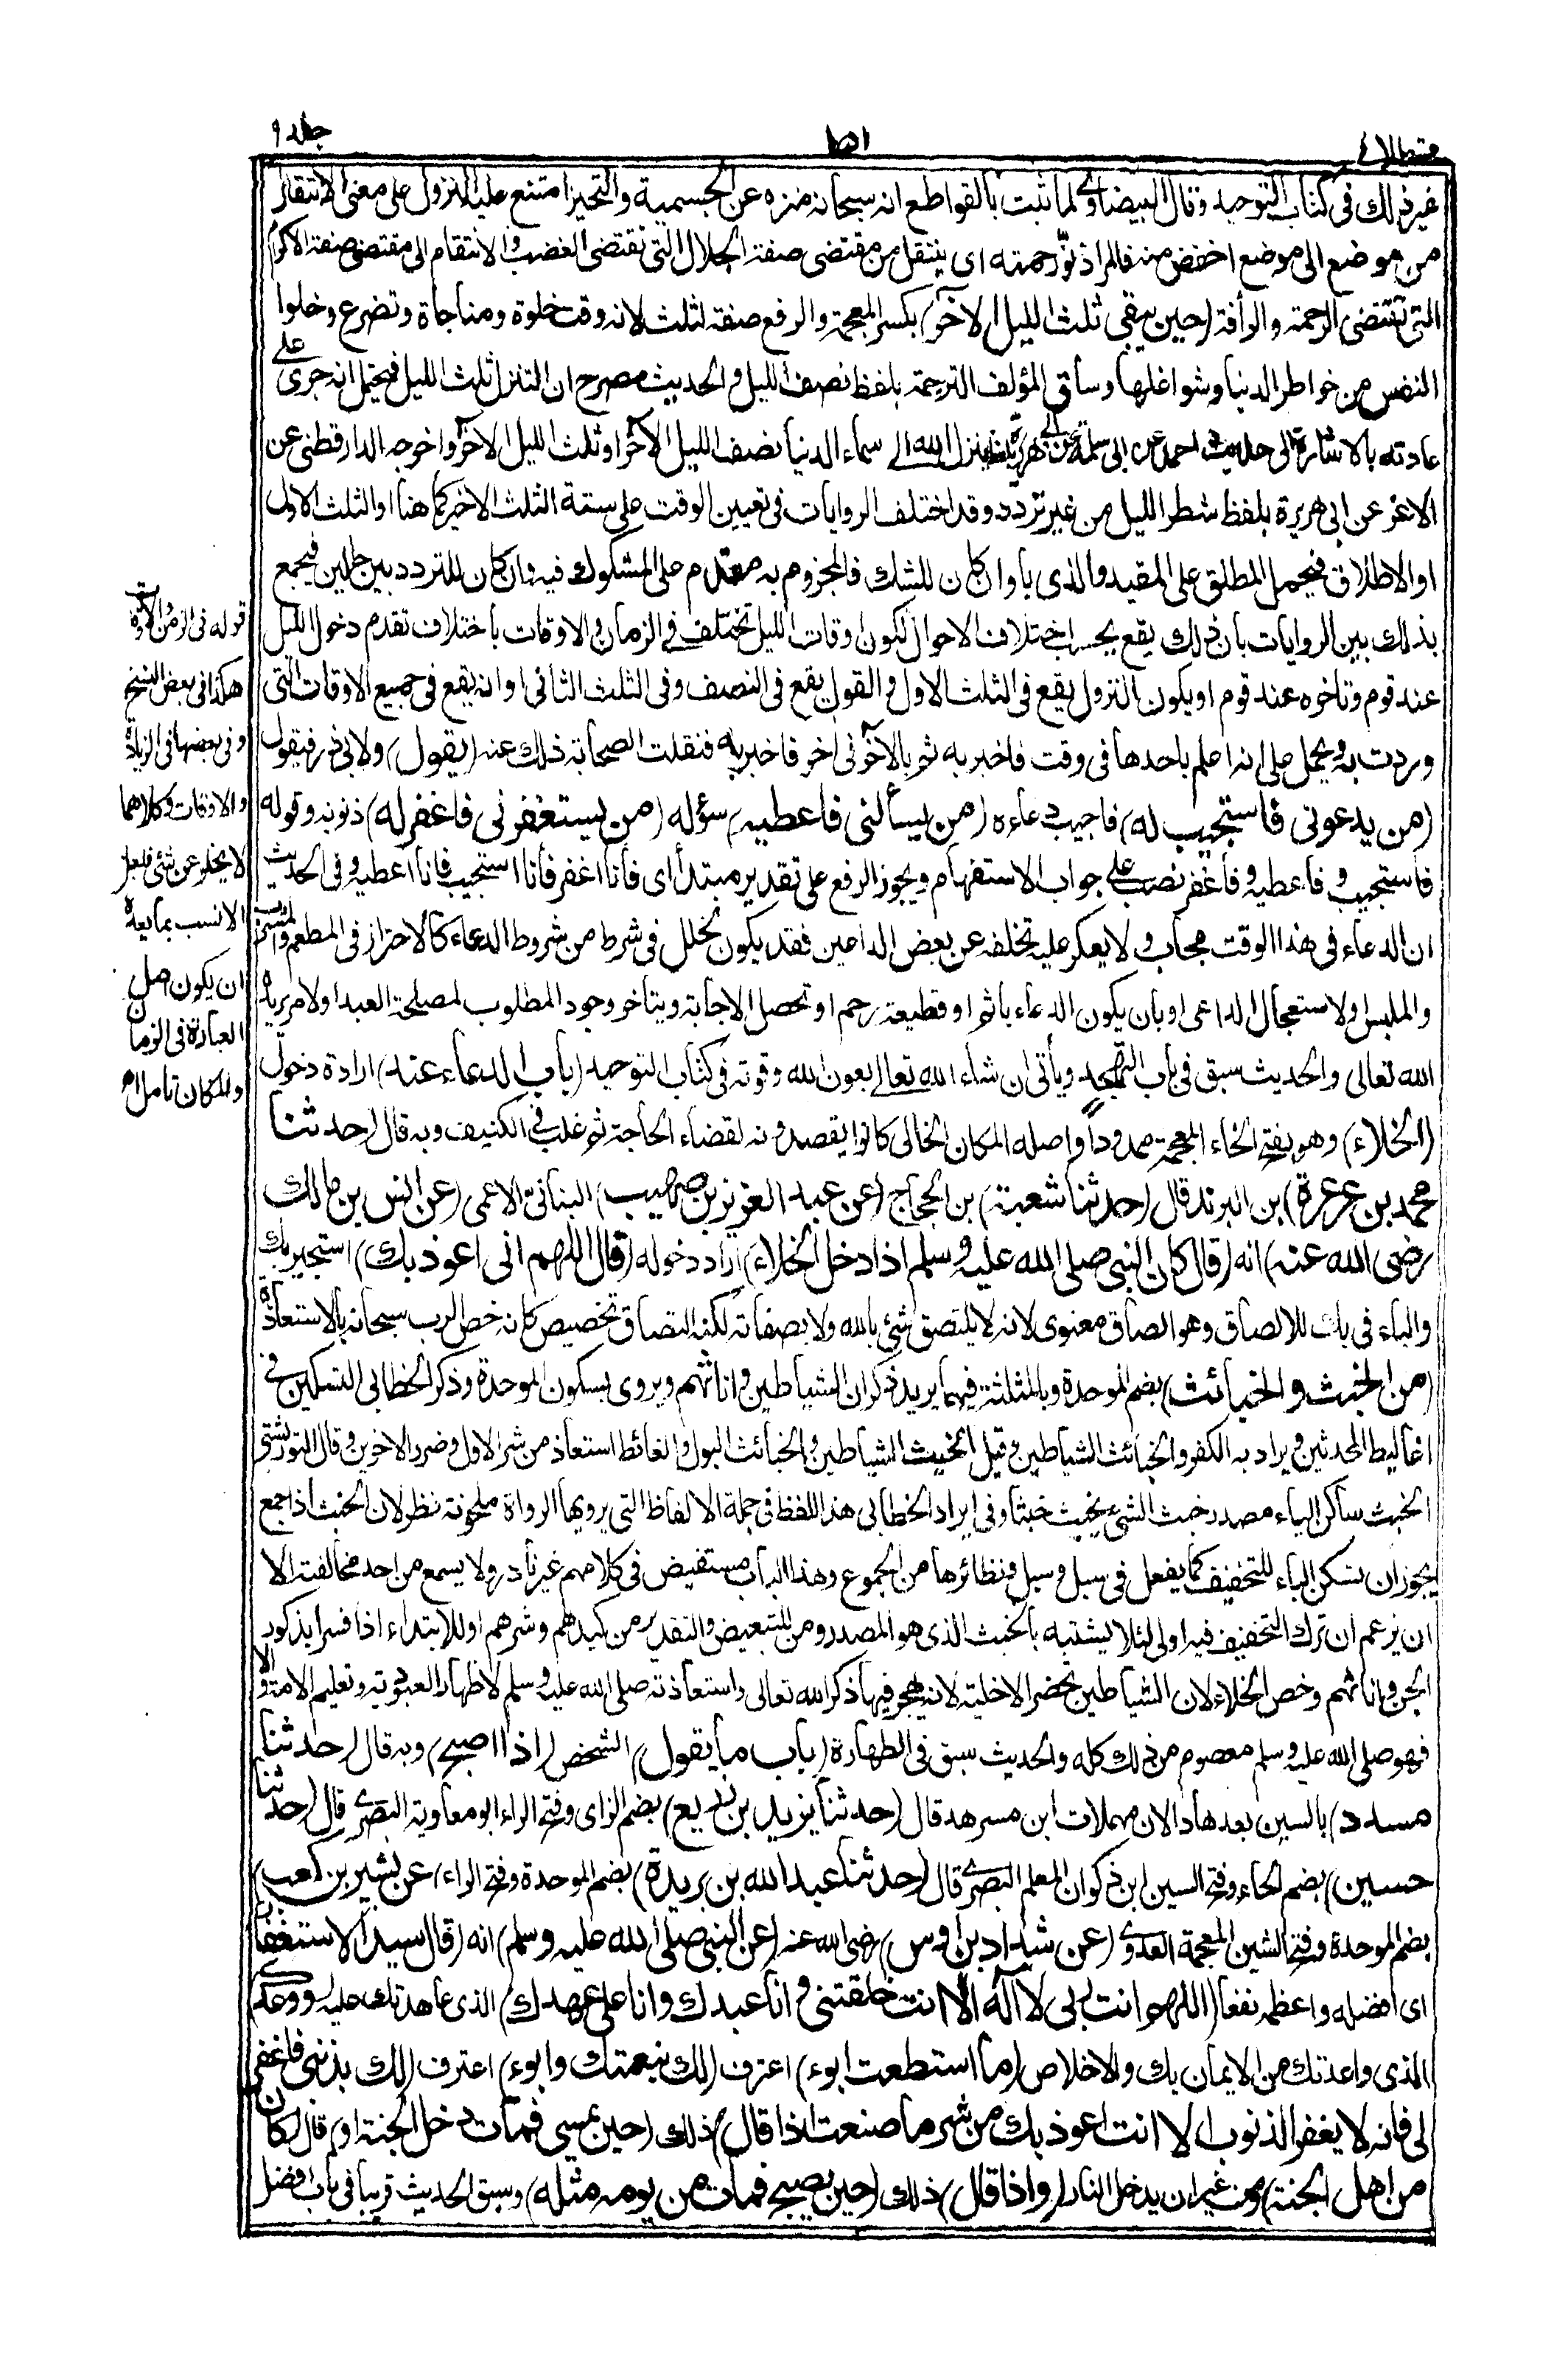 قسطلانی ۱۵۱ جلد ۹
غير ذلك فى كتاب التوحيد وقال البيضاوى لما ثبت بالقواطع انه سبحانه منزه عن الجسمية والتحيز امتنع عليه النزول على معنى الانتقال
من موضع الى موضع اخفض منه فالمراد نور رحمته اى ينتقل من مقتضى صفة الجلال التى تقتضى الغضب والانتقام الى مقتضى صفة الاكرام
التى تقتضى الرحمة والرأفة (حين يبقى ثلث الليل الآخر) بكسر المعجمة والرفع صفة لثلث لانه وقت خلوة ومناجاة وتضرع وخلوا
النفس من خواطر الدنيا وشواغلها وساق المؤلف الترجمة بلفظ نصف الليل والحديث مصرح ان التنزل ثلث الليل فيحتمل انه جرى على
عادته بالاشارة الى حديث احمد عن ابى سلمة عن ابى هريرة بلفظ ينزل الله الى سماء الدنيا نصف الليل الآخر او ثلث الليل الآخر واخرجه الدارقطنى عن
الاغر عن ابى هريرة بلفظ شطر الليل من غير تردد وقد اختلف الروايات فى تعيين الوقت على ستة الثلث الاخير كما هنا او الثلث الاول
او الاطلاق فيحمل المطلق على المقيد والذى باو ان كان للشك فالمجزوم به مقدم على المشكوك فيه وان كان للتردد بين حالين فيجمع
بذلك بين الروايات بان ذلك يقع بحسب اختلاف الاحوال لكون اوقات الليل تختلف فى الزمان والاوقات باختلاف تقدم دخول الليل
عند قوم وتاخره عند قوم او يكون النزول يقع فى الثلث الاول والقول يقع فى النصف وفى الثلث الثانى او انه يقع فى جميع الاوقات التى
وردت به ويحمل على انه اعلم باحدها فى وقت فاخبر به ثم بالآخر فى اخر فاخبر به فنقلت الصحابة ذلك عنه (يقول) ولابى ذر فيقول
(من يدعونى فاستجيب له) فاجيب دعاءه (من يسألنى فاعطيه) سؤله (من يستغفرنى فاغفر له) ذنوبه وقوله
فاستجيب وفاعطيه وفاغفر نصب على جواب الاستفهام ويجوز الرفع على تقدير مبتدأ اى فأنا اغفر فأنا استجيب فانا اعطيه وفى الحديث
ان الدعاء فى هذا الوقت مجاب ولا يعكر عليه تخلفه عن بعض الداعين فقد يكون لخلل فى شرط من شروط الدعاء كالاحتراز فى المطعم والمشرب
والملبس او لاستعجال الداعى او بان يكون الدعاء باثم او قطيعة رحم او تحصل الاجابة ويتأخر وجود المطلوب لمصلحة العبد او لامر يريده
الله تعالى والحديث سبق فى باب التهجد ويأتى ان شاء الله تعالى بعون الله وقوته فى كتاب التوحيد (باب الدعاء عند) ارادة دخول
(الخلاء) وهو بفتح الخاء المعجمة ممدودا واصله المكان الخالى كانوا يقصدونه لقضاء الحاجة ثم غلب فى الكنيف وبه قال (حدثنا
محمد بن عرعرة) بن البرند قال (حدثنا شعبة) بن الحجاج (عن عبد العزيز بن صهيب) البنانى الاعمى (عن انس بن مالك
رضى الله عنه) انه (قال كان النبى صلى الله عليه وسلم اذا دخل الخلاء) اراد دخوله (قال اللهم انى اعوذ بك) استجير بك
والباء فى بك للالصاق وهو الصاق معنوى لانه لا يلتصق شئ بالله ولا بصفاته لكنه التصاق تخصيص كانه خص الرب سبحانه بالاستعاذة
(من الخبث والخبائث) بضم الموحدة وبالمثلثة فيهما يريد ذكران الشياطين واناثهم ويروى بسكون الموحدة وذكر الخطابى التسكين فى
اغاليط المحدثين ويراد به الكفر والخبائث الشياطين وقيل الخبث الشياطين والخبائث البول والغائط استعاذ من شر الاول وضرر الاخرين وقال التوربشتى
الخبث ساكن الباء مصدر خبث الشئ يخبث خبثا وفى ايراد الخطابى هذا اللفظ فى جملة الالفاظ التى يرويها الرواة ملحونة نظر لان الخبث اذا جمع
يجوز ان تسكن الباء للتخفيف كما يفعل فى سبل وسبل ونظائرها من الجموع وهذا الباب مستفيض فى كلامهم غير نادر ولا يسمع من احد مخالفته الا
ان يزعم ان ترك التخفيف فيه اولى لئلا يشتبه بالخبث الذى هو المصدر ومن للتبعيض والتقدير من كيدهم وشرهم او للابتداء اذا فسر بذكور
الجن واناثهم وخص الخلاء لان الشياطين تحضر الاخلية لانه يهجر فيها ذكر الله تعالى واستعاذته صلى الله عليه وسلم لاظهار العبودية وتعليم الامة والا
فهو صلى الله عليه وسلم معصوم من ذلك كله والحديث سبق فى الطهارة (باب ما يقول) الشخص (اذا اصبح) وبه قال (حدثنا
مسدد) بالسين بعدها دالان مهملات ابن مسرهد قال (حدثنا يزيد بن زريع) بضم الزاى وفتح الراء ابو معاوية البصرى قال (حدثنا
حسين) بضم الحاء وفتح السين ابن ذكوان المعلم البصرى قال (حدثنا عبد الله بن بريدة) بضم الموحدة وفتح الراء (عن بشير بن كعب)
بضم الموحدة وفتح الشين المعجمة العدوى (عن شداد بن اوس) رضى الله عنه (عن النبى صلى الله عليه وسلم) انه (قال سيد الاستغفار)
اى افضله واعظمه نفعا (اللهم انت ربى لا اله الا انت خلقتنى وانا عبدك وانا على عهدك) الذى عاهدتك عليه (ووعدك)
الذى واعدتك من الايمان بك والاخلاص (ما استطعت ابوء) اعترف (لك بنعمتك وابوء) اعترف (لك بذنبى فاغفر
لى فانه لا يغفر الذنوب الا انت اعوذ بك من شر ما صنعت اذا قال) ذلك (حين يمسى فمات دخل الجنة او) قال (كان
من اهل الجنة) من غير ان يدخل النار (واذا قال) ذلك (حين يصبح فمات من يومه مثله) وسبق الحديث قريبا فى باب افضل
قوله فى الزمن والاوقات
هكذا فى بعض النسخ
وفى بعضها فى الزيادة
والاوقات وكلاهما
لا يخلو عن شئ فلعل
الانسب بما بعده
ان يكون اصل
العبارة فى الزمان
والمكان تامل اه